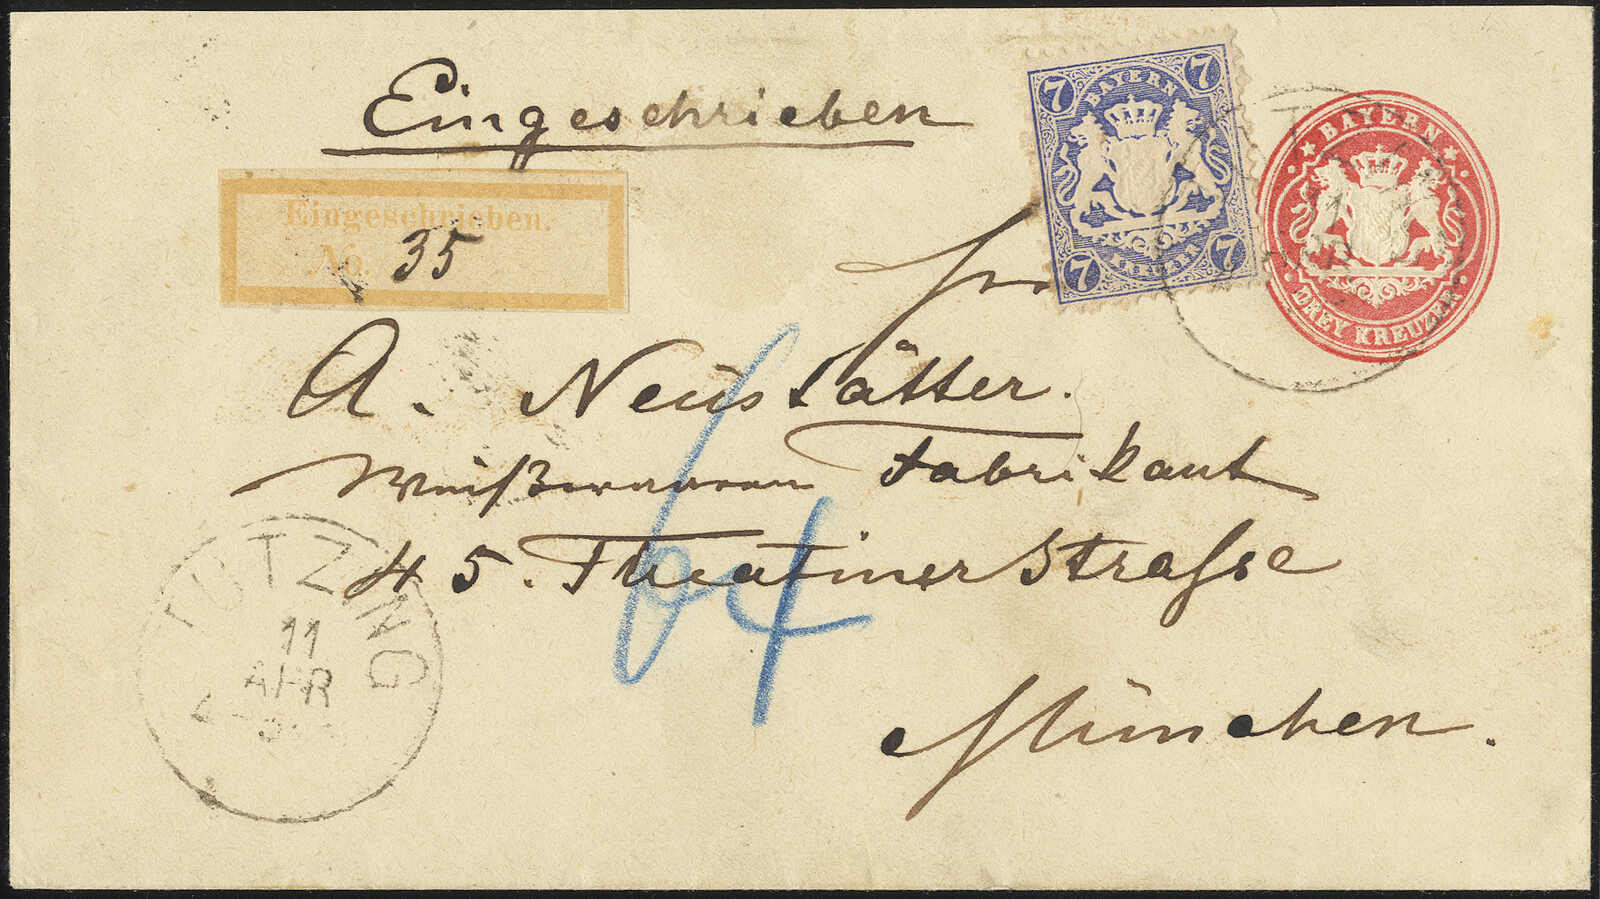 Eingeschrieben
Eingeschrieben.
No. 35
7 BAYERN 7
7 KREUZER 7
BAYERN
DREY KREUZER
Fr
A. Neustätter.
Weißwaaren Fabrikant
45. Theatinerstrasse
München.
TUTZING
11
APR
64